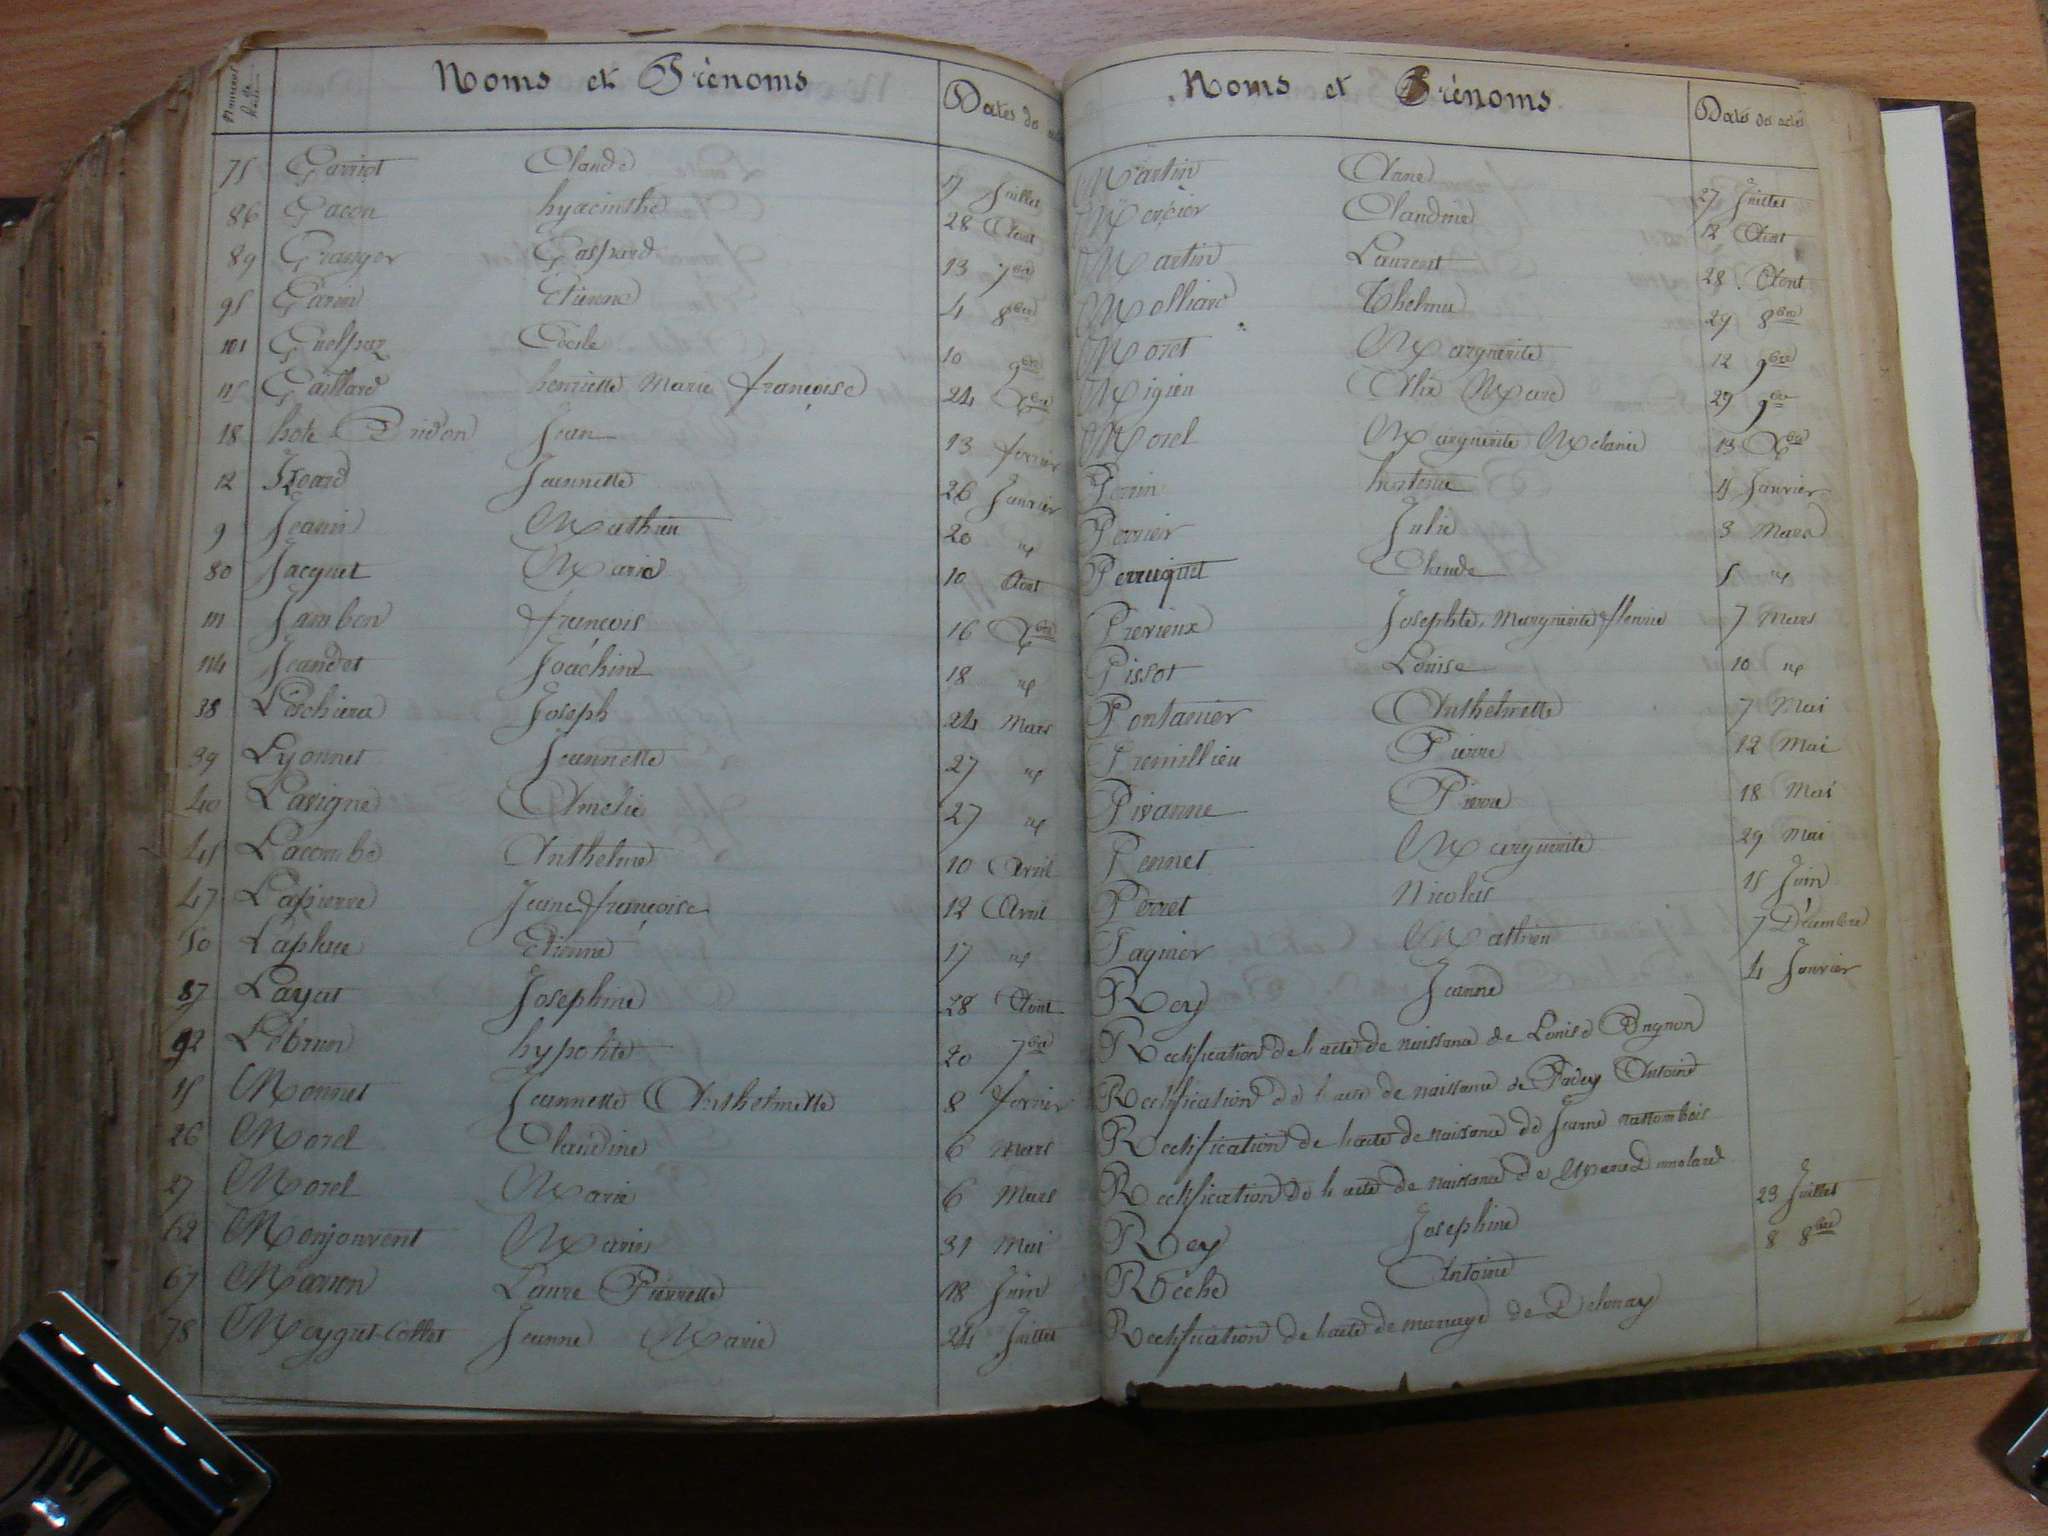 Numéros de
Noms et Prénoms
Dates des
75 Garriot Claude 17 Juillet
86 Gacon hyacinthe 28 Aout
89 Granger Gaspard 13 7bre
95 Garin Etienne 4 8bre
101 Cécile 10 9bre
115 Gaillard henriette Marie françoise 24 Xbre
18 hote Dridon Jean 13 fevrier
12 Jsoard Jeannette 26 Janvier
9 Jeanin Mathieu 20 "
80 Jacquet Marie 10 Aout
111 Jambon françois 16 Xbre
114 Jeandet Joachim 18 "
38 Joseph 24 Mars
39 Lyonnet Jeannette 27 "
40 Lavigne Amelie 27 "
45 Lacombe Anthelme 10 Avril
47 Lapierre Jeane françoise 12 Avril
50 Etienne 17 "
87 Layat Josephine 28 Aout
92 Lebrun hypolite 20 7bre
15 Monnet Jeannette Anthelmette 8 fevrier
26 Morel Claudine 6 Mars
27 Morel Marie 6 Mars
62 Monjouvent Marie 31 Mai
67 Marion Laure Pierrette 18 Juin
78 Meygret-Collet Jeanne Marie 24 Juillet
Noms et Prénoms
Dates des actes
Martin Anne 27 Juillet
Mercier Claudine 12 Aout
Martin Laurent 28 Aout
Molliard Thelme 29 8bre
Moret Marguerite 12 9bre
Migieu Alix Marc 29 9bre
Morel Marguerite Melanie 13 Xbre
Perrin hortense 4 Janvier
Perrier Julie 3 Mars
Perruquet Claude 5 "
Previeux Josephte, Marguerite fleurie 7 Mars
Pissot Louise 10 "
Pontanier Anthelmette 7 Mai
Premillieu Pierre 12 Mai
Pivanne Pierre 18 Mai
Pennet Marguerite 29 Mai
Perret Nicolas 15 Juin
Pagnier Mathieu 7 Décembre
Rey Jeanne 4 Janvier
Rectification de l'acte de naissance de Louise Dugnon
Rectification de l'acte de naissance de Padey Antoine
Rectification de l'acte de naissance de Jeanne
Rectification de l'acte de naissance de Marie Dumolard
Rey Josephine 23 Juillet
Roche Antoine 8 8bre
Rectification de l'acte de mariage de Delonay